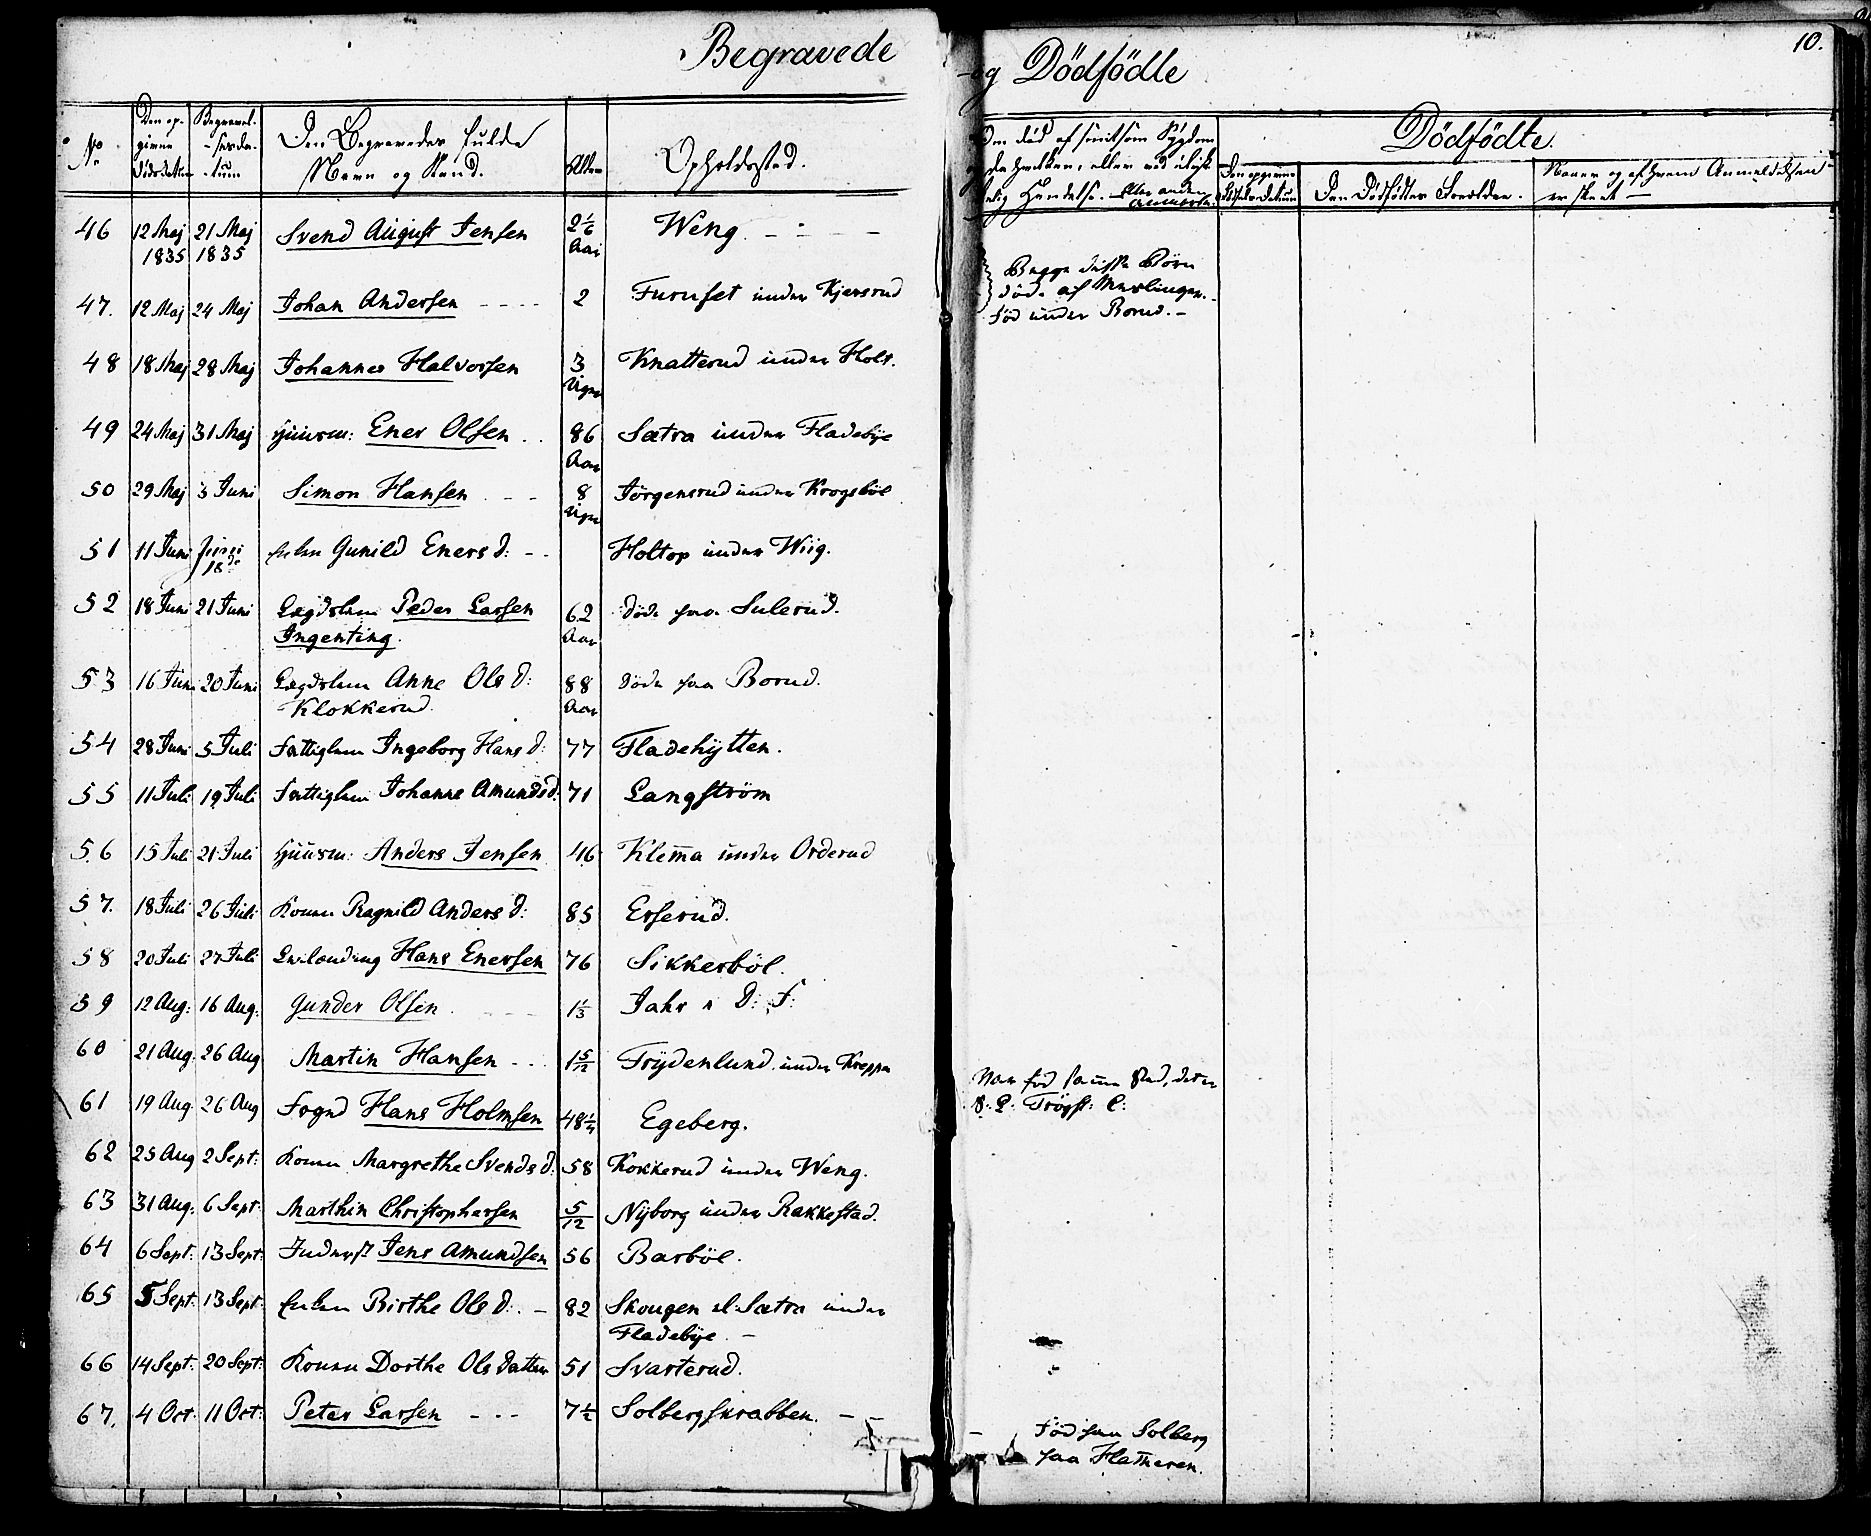 Begravede
No
Den op-
givne
Dödsdatum
Begravel-
sesda-
tum
Den Begravedes fulde
Navn og Stand.
Alder
Opholdssted.
46 12 Maj 1835 21 Maj 1835 Svend August Jensen 2 1/6 Aar Weng
47. 12 Maj 24 Maj Johan Andersen 2 Furuset under Kjensrud
48 18 Maj 28 Maj Johannes Halvorsen 3 Uger Knatterud under Hols.
49 24 Maj 31 Maj Huusm: Ener Olsen 86 Aar Sætra under Fladebye
50 29 Maj 3 Juni Simon Hansen 8 Uger Jörgensrud under Krogsböl
51 11 Juni Enken Gunild Eners d: Holtop under Wiig.
52 18 Juni 21 Juni Lægdslem Peder Larsen 62 Aar döde paa Sulerud.
Ingenting.
53 16 Juni 20 Juni Lægdslem Anne Ols d: 88 Aar döde paa Borud.
Klokkerud.
54 28 Juni 5 Juli Fattiglem Ingeborg Hans d: 77 Fladehytten.
55 11 Juli 19 Juli Fattiglem Johanne Amunds d: 71 Langström
56 15 Juli 21 Juli Huusm: Anders Jensen 46 Klem̄a under Orderud
57. 18 Juli 26 Juli Konen Ragnild Anders d: 85 Erserud.
58 20 Juli 27 Juli Hans Enersen 76 Sikkerböl.
59 12 Aug: 16 Aug: Gunder Olsen 1 1/3 Jahr
60 21 Aug: 26 Aug Martin Hansen 1 5/12 Frydenlund under Kreppa
61 19 Aug 26 Aug Fogd Hans Holmsen 48 1/4 Egeberg.
62 25 Aug 2 Sept: Konen Margrethe Svends d: 58 Kokkerud under Weng.
63 31 Aug: 6 Sept: Marthin Christophersen 5/12 Nyborg under Rakkestad.
64 6 Sept: 13 Sept: Inderst Jens Amundsen 56 Barböl.
65 5 Sept: 13 Sept: Enken Birthe Ols d: 82 Skougen el: Sætra under
Fladebye.
66 14 Sept: 20 Sept: Konen Dorthe Olsdatter 51 Svarterud.
67. 4 Oct: 11 Oct: Peter Larsen 7 1/2 Solbergskrabben.
og Dödfödte
10.
Om död af smitsom Sygdom
og da hvilken, eller ved ulyk-
kelig Hændelse. eller anden
Dödfödte.
Den opgivne
Födselsdatum
Den Dödfödtes Forældre.
Naar og af hvem Anmeldelsen
er skeet
Begge disse Börn
döde af Mæslinger.
Föd under Borud.
Var föd samme Sted,
Föd paa Solberg
paa Ham̄eren.